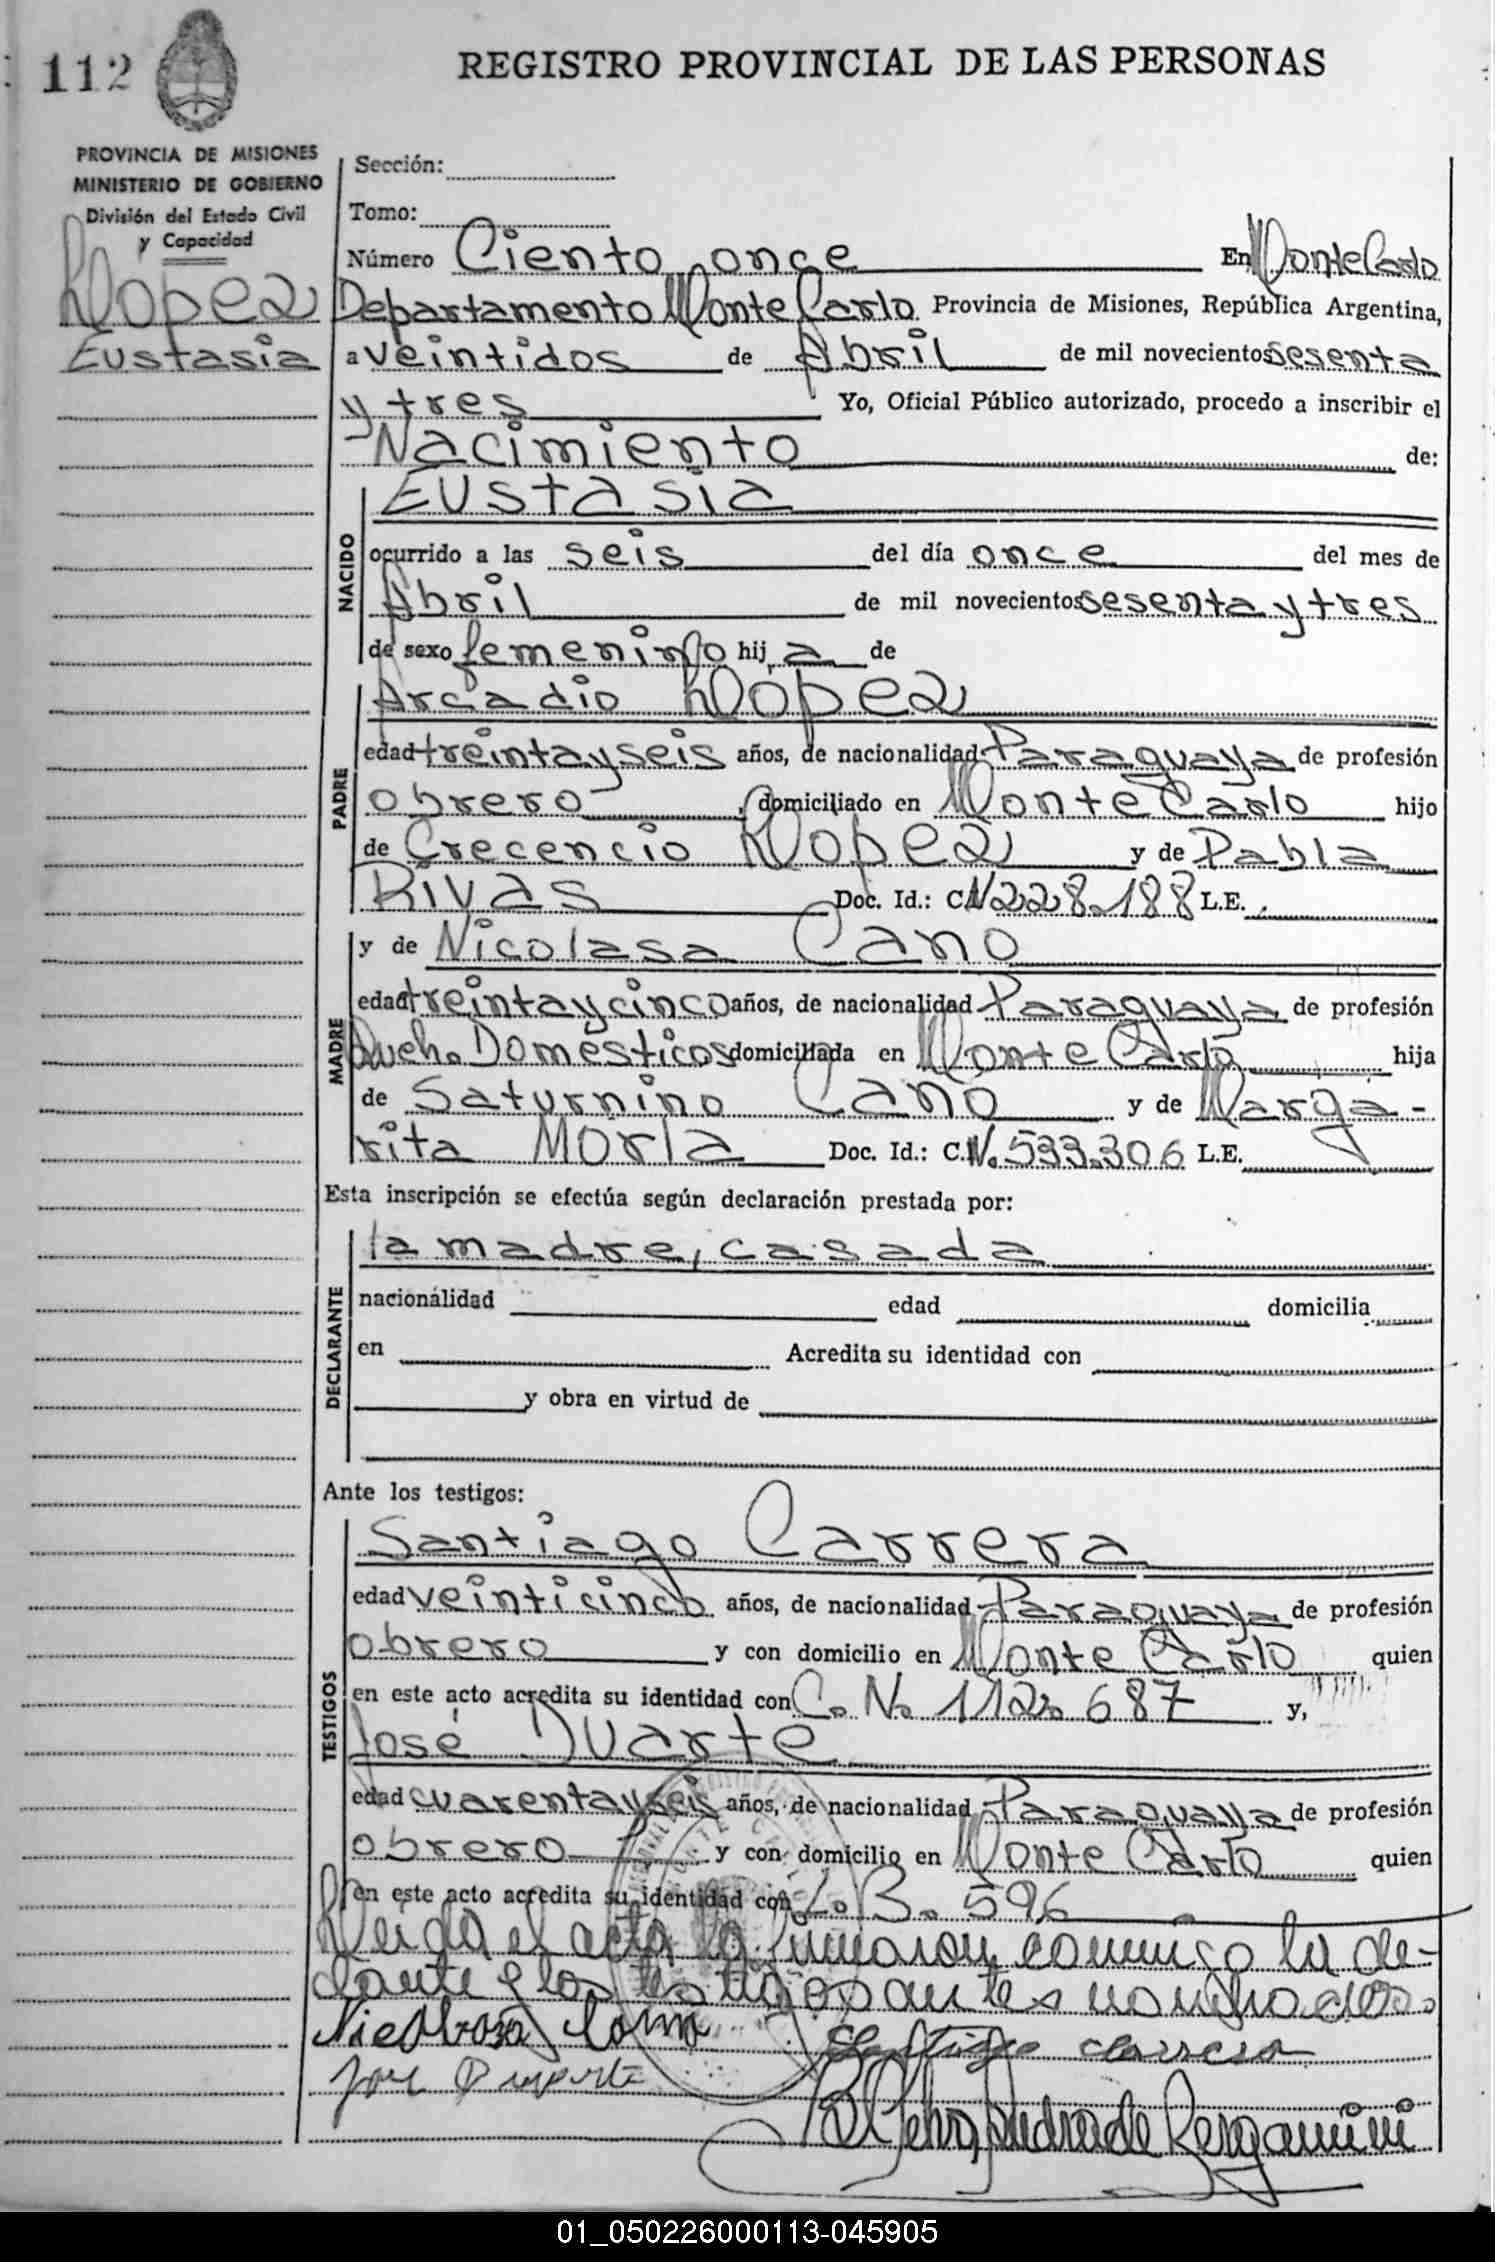 112
REGISTRO PROVINCIAL DE LAS PERSONAS
PROVINCIA DE MISIONES
MINISTERIO DE GOBIERNO
División del Estado Civil
y Capacidad
Lopez
Eustasia
Sección:
Tomo:
Número Ciento once En MonteCarlo
Departamento Monte Carlo Provincia de Misiones, República Argentina,
a veintidos de Abril de mil novecientos sesenta
y tres Yo, Oficial Público autorizado, procedo a inscribir el
Nacimiento de:
NACIDO
Eustasia
ocurrido a las seis del día once del mes de
Abril de mil novecientos sesenta y tres
de sexo femenino hij a de
PADRE
Arcadio Lopez
edad treinta y seis años, de nacionalidad Paraguaya de profesión
obrero, domiciliado en Monte Carlo hijo
de Crecencio Lopez y de Pabla
Rivas Doc. Id.: C.N 228.188 L.E.
MADRE
y de Nicolasa Cano
edad treinta y cinco años, de nacionalidad Paraguaya de profesión
Queh. Domésticos domiciliada en Monte Carlo hija
de Saturnino Cano y de Marga-
rita Morla Doc. Id.: C.N. 533.306 L.E.
Esta inscripción se efectúa según declaración prestada por:
DECLARANTE
la madre, casada
nacionalidad edad domicilia
en Acredita su identidad con
y obra en virtud de
Ante los testigos:
TESTIGOS
Santiago Carrera
edad veinticinco años, de nacionalidad Paraguaya de profesión
obrero y con domicilio en Monte Carlo quien
en este acto acredita su identidad con C. N. 112.687 y,
José Duarte
edad cuarenta y seis años, de nacionalidad Paraguaya de profesión
obrero y con domicilio en Monte Carlo quien
en este acto acredita su identidad con L. B. 596
Leida el acta la firmaron conmigo la de-
clante e los testigos antes nombrados.
Nicolasa Cano Santiago Carrera
Jose Duarte
Andrade Bergamini
01_050226000113-045905